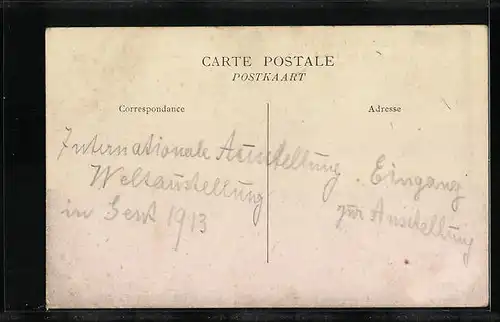 CARTE POSTALE
POSTKAART
Correspondance
Adresse
Internationale Ausstellung
Weltausstellung
in Gent 1913
. Eingang
zur Ausstellung